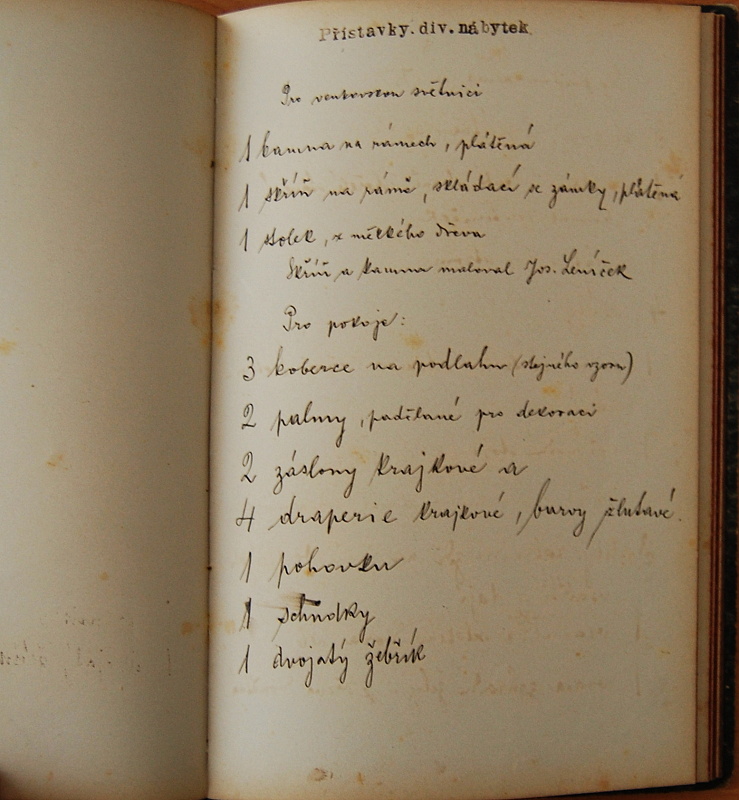 Přístavky.div.nábytek.
Pro venkovskou světnici
1 kamna na rámech, plátěná
1 skříň na rámě, skládací se zámky, plátěná
1 stolek, z měkkého dřeva
Skříň a kamna maloval Jos. Leníček
Pro pokoje:
3 koberce na podlahu (stejného vzoru)
2 palmy, padělané pro dekoraci
2 záslony krajkové a
4 draperie krajkové, barvy žlutavé.
1 pohovku
1 schudky
1 dvojatý žebřík